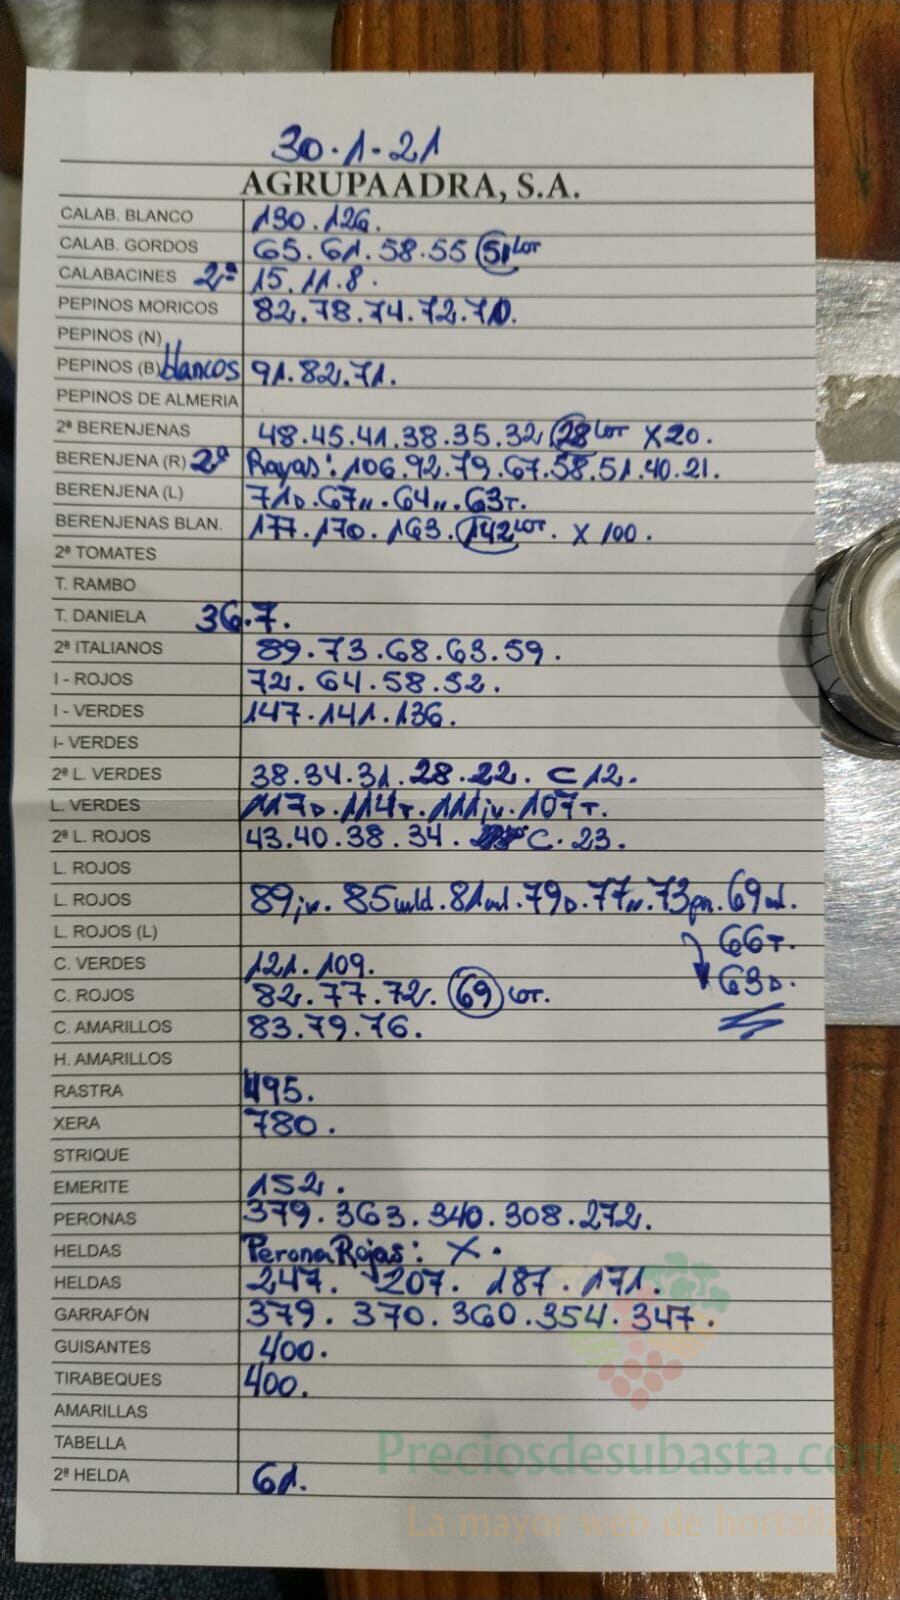 30.1.21
AGRUPAADRA, S.A.
CALAB. BLANCO 130.126.
CALAB. GORDOS 65.61.58.55 51 LOT
CALABACINES 2ª 15.11.8.
PEPINOS MORICOS 82.78.74.72.70.
PEPINOS (N)
PEPINOS (B) blancos 91.82.71.
PEPINOS DE ALMERIA
2ª BERENJENAS 48.45.41.38.35.32 28 LOT X20.
BERENJENA (R) 2ª Rayas: 106.92.79.67.58.51.40.21.
BERENJENA (L) 71D.67".64".63T.
BERENJENAS BLAN. 177.170.163.142 LOT. X 100.
2ª TOMATES
T. RAMBO
T. DANIELA 36.7.
2ª ITALIANOS 89.73.68.63.59.
I - ROJOS 72.64.58.52.
I - VERDES 147.141.136.
I- VERDES
2ª L. VERDES 38.34.31.28.22. C 12.
L. VERDES 117D.114T.111iv.107T.
2ª L. ROJOS 43.40.38.34. C.23.
L. ROJOS
L. ROJOS 89iv.85 81 79D.77".73 69
L. ROJOS (L) 66T.
C. VERDES 121.109.
63D.
C. ROJOS 82.77.72. 69 LOT.
C. AMARILLOS 83.79.76.
H. AMARILLOS
RASTRA 495.
XERA 780.
STRIQUE
EMERITE 152.
PERONAS 379.363.340.308.272.
HELDAS Perona Rojas: X.
HELDAS 247. 207. 187.171.
GARRAFÓN 379.370.360.354.347.
GUISANTES 400.
TIRABEQUES 400.
AMARILLAS
TABELLA
Preciosdesubasta.com
2ª HELDA 61.
La mayor web de hortalizas